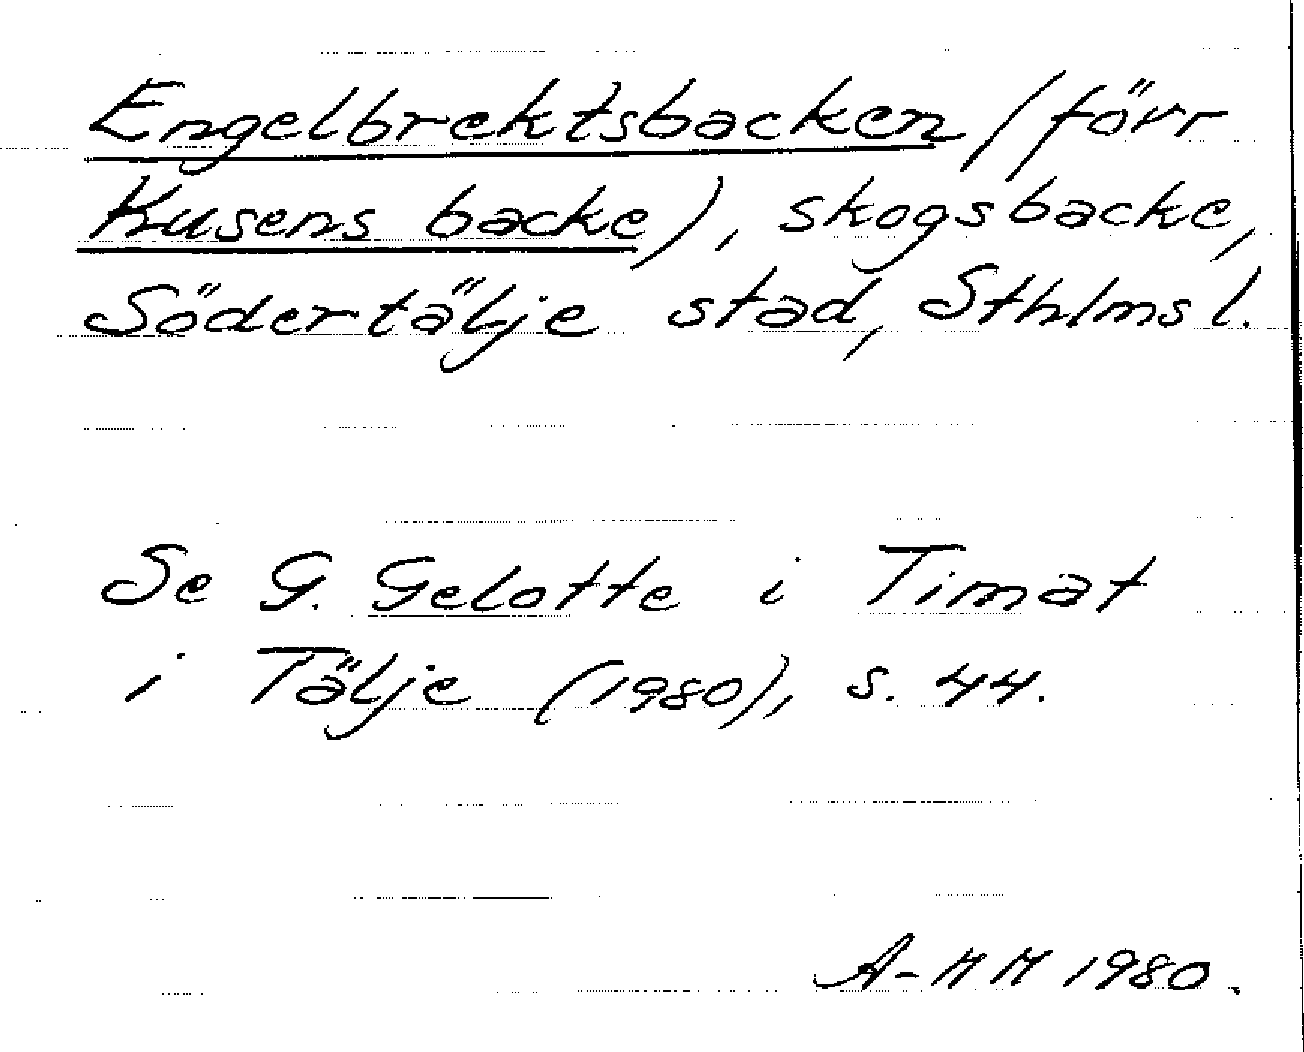 Engelbrektsbacken (förr
Kusens backe), skogsbacke,
Södertälje stad, Sthlms l.
Se G. Gelotte i Timat
i Tälje (1980), s. 44.
A-HH 1980.